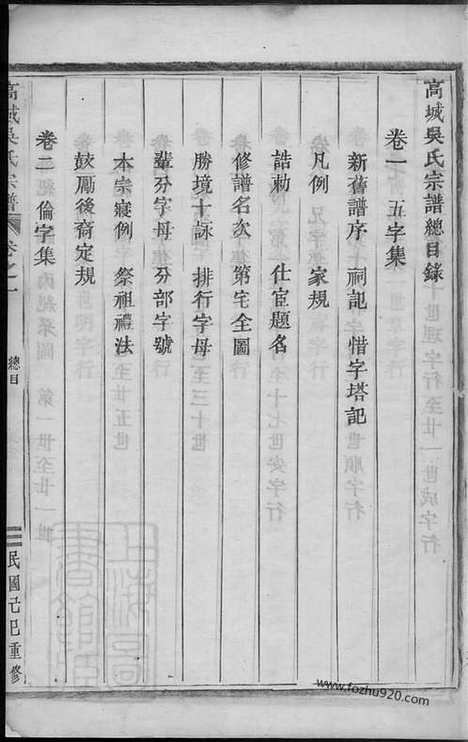 高城吳氏宗譜總目錄
卷一 五字集
新舊譜序 祠記 惜字塔記
凡例 家規
誥勅 仕宦題名
修譜名次 第宅全圖
勝境十詠 排行字母
輩分字母分部字號
本宗寢例 祭祖禮法
鼓勵後裔定規
卷二 倫字集
高城吳氏宗譜 卷之一 總目 民國己巳重修
www.fozhu920.com